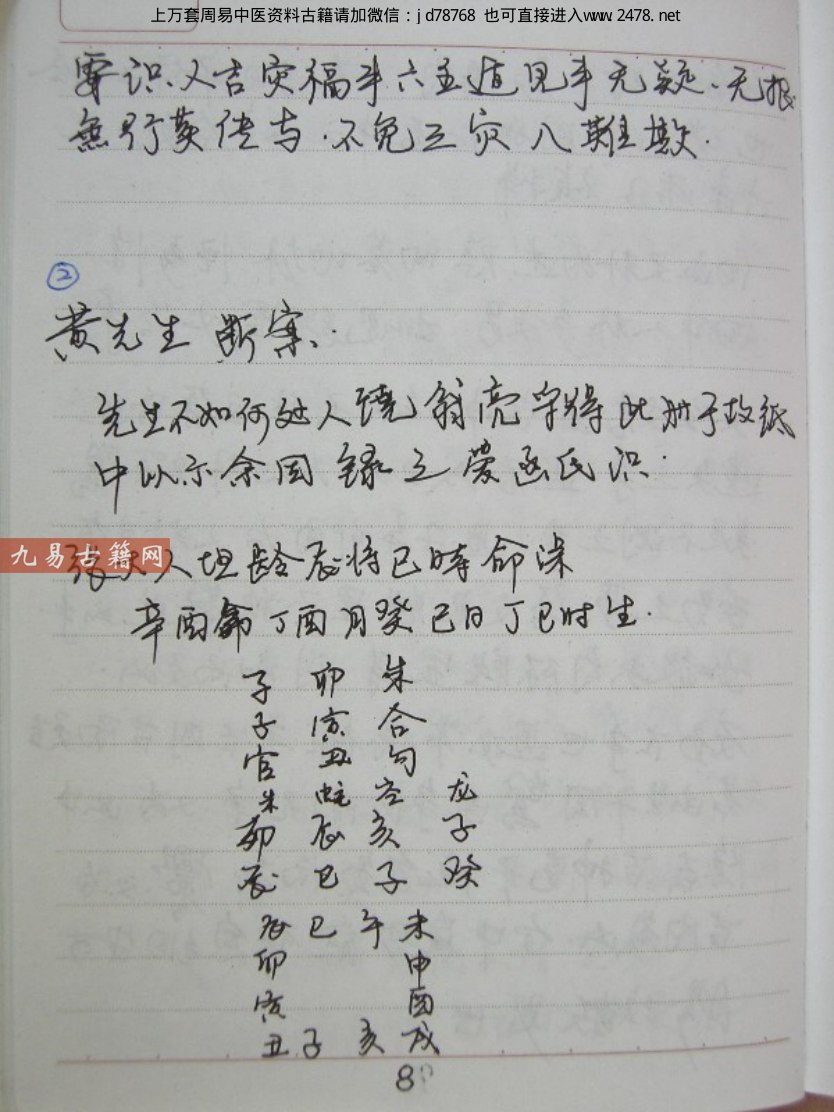 上万套周易中医资料古籍请加微信：jd78768 也可直接进入www.2478.net
要识人吉灾福 六五道见 无疑、无根
無行莫传与．不免三灾八難数．
②
黄先生断案．
先生不如何处人 饶翁亮 得此册于故纸
中以示余因録之 識．
九易古籍网
张夫人坦龄辰将巳時命 
辛酉命丁酉月癸巳日丁巳时生．
子 卯 朱
子 寅 合
官 丑 句
朱 蛇 空 龙
卯 辰 亥 子
辰 巳 子 癸
辰 巳 午 未
卯 申
寅 酉
丑 子 亥 戌
8